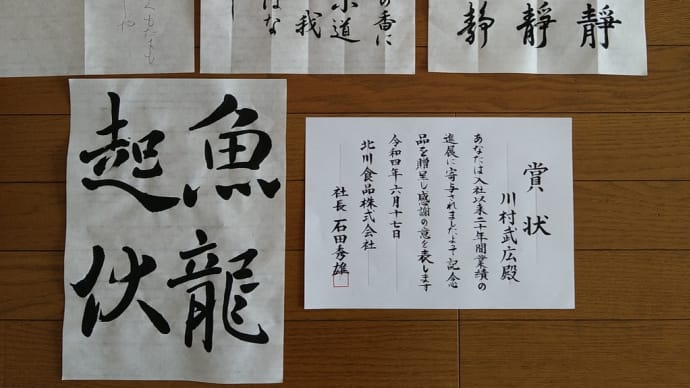 靜
靜
静
の香に
道
我
はな
賞状
川村武広殿
あなたは入社以来二十年間業績の
進展に寄与されましたよって記念
品を贈呈し感謝の意を表します
令和四年六月十七日
北川食品株式会社
社長 石田秀雄
魚龍
起伏